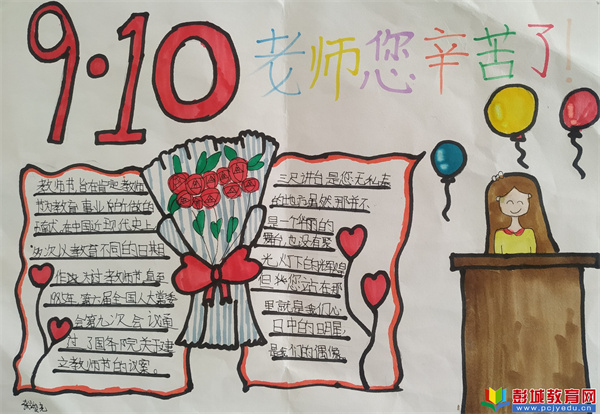 9·10
老师您辛苦了!
教师节,旨在肯定教师
为教育事业所做的
贡献。在中国近现代史上,
多次以教育不同的日期
作为过教师节。直至
1985年,第六届全国人大常委
会第九次会议审
过了国务院关于建
立教师节的议案。
三尺讲台是您无私奉
是一个华丽的
舞台,也没有聚
光灯下的辉煌
但是您站在那
里就是我们心
目中的明星,
是我们的偶像。
彭城教育网
www.pcjyedu.cn